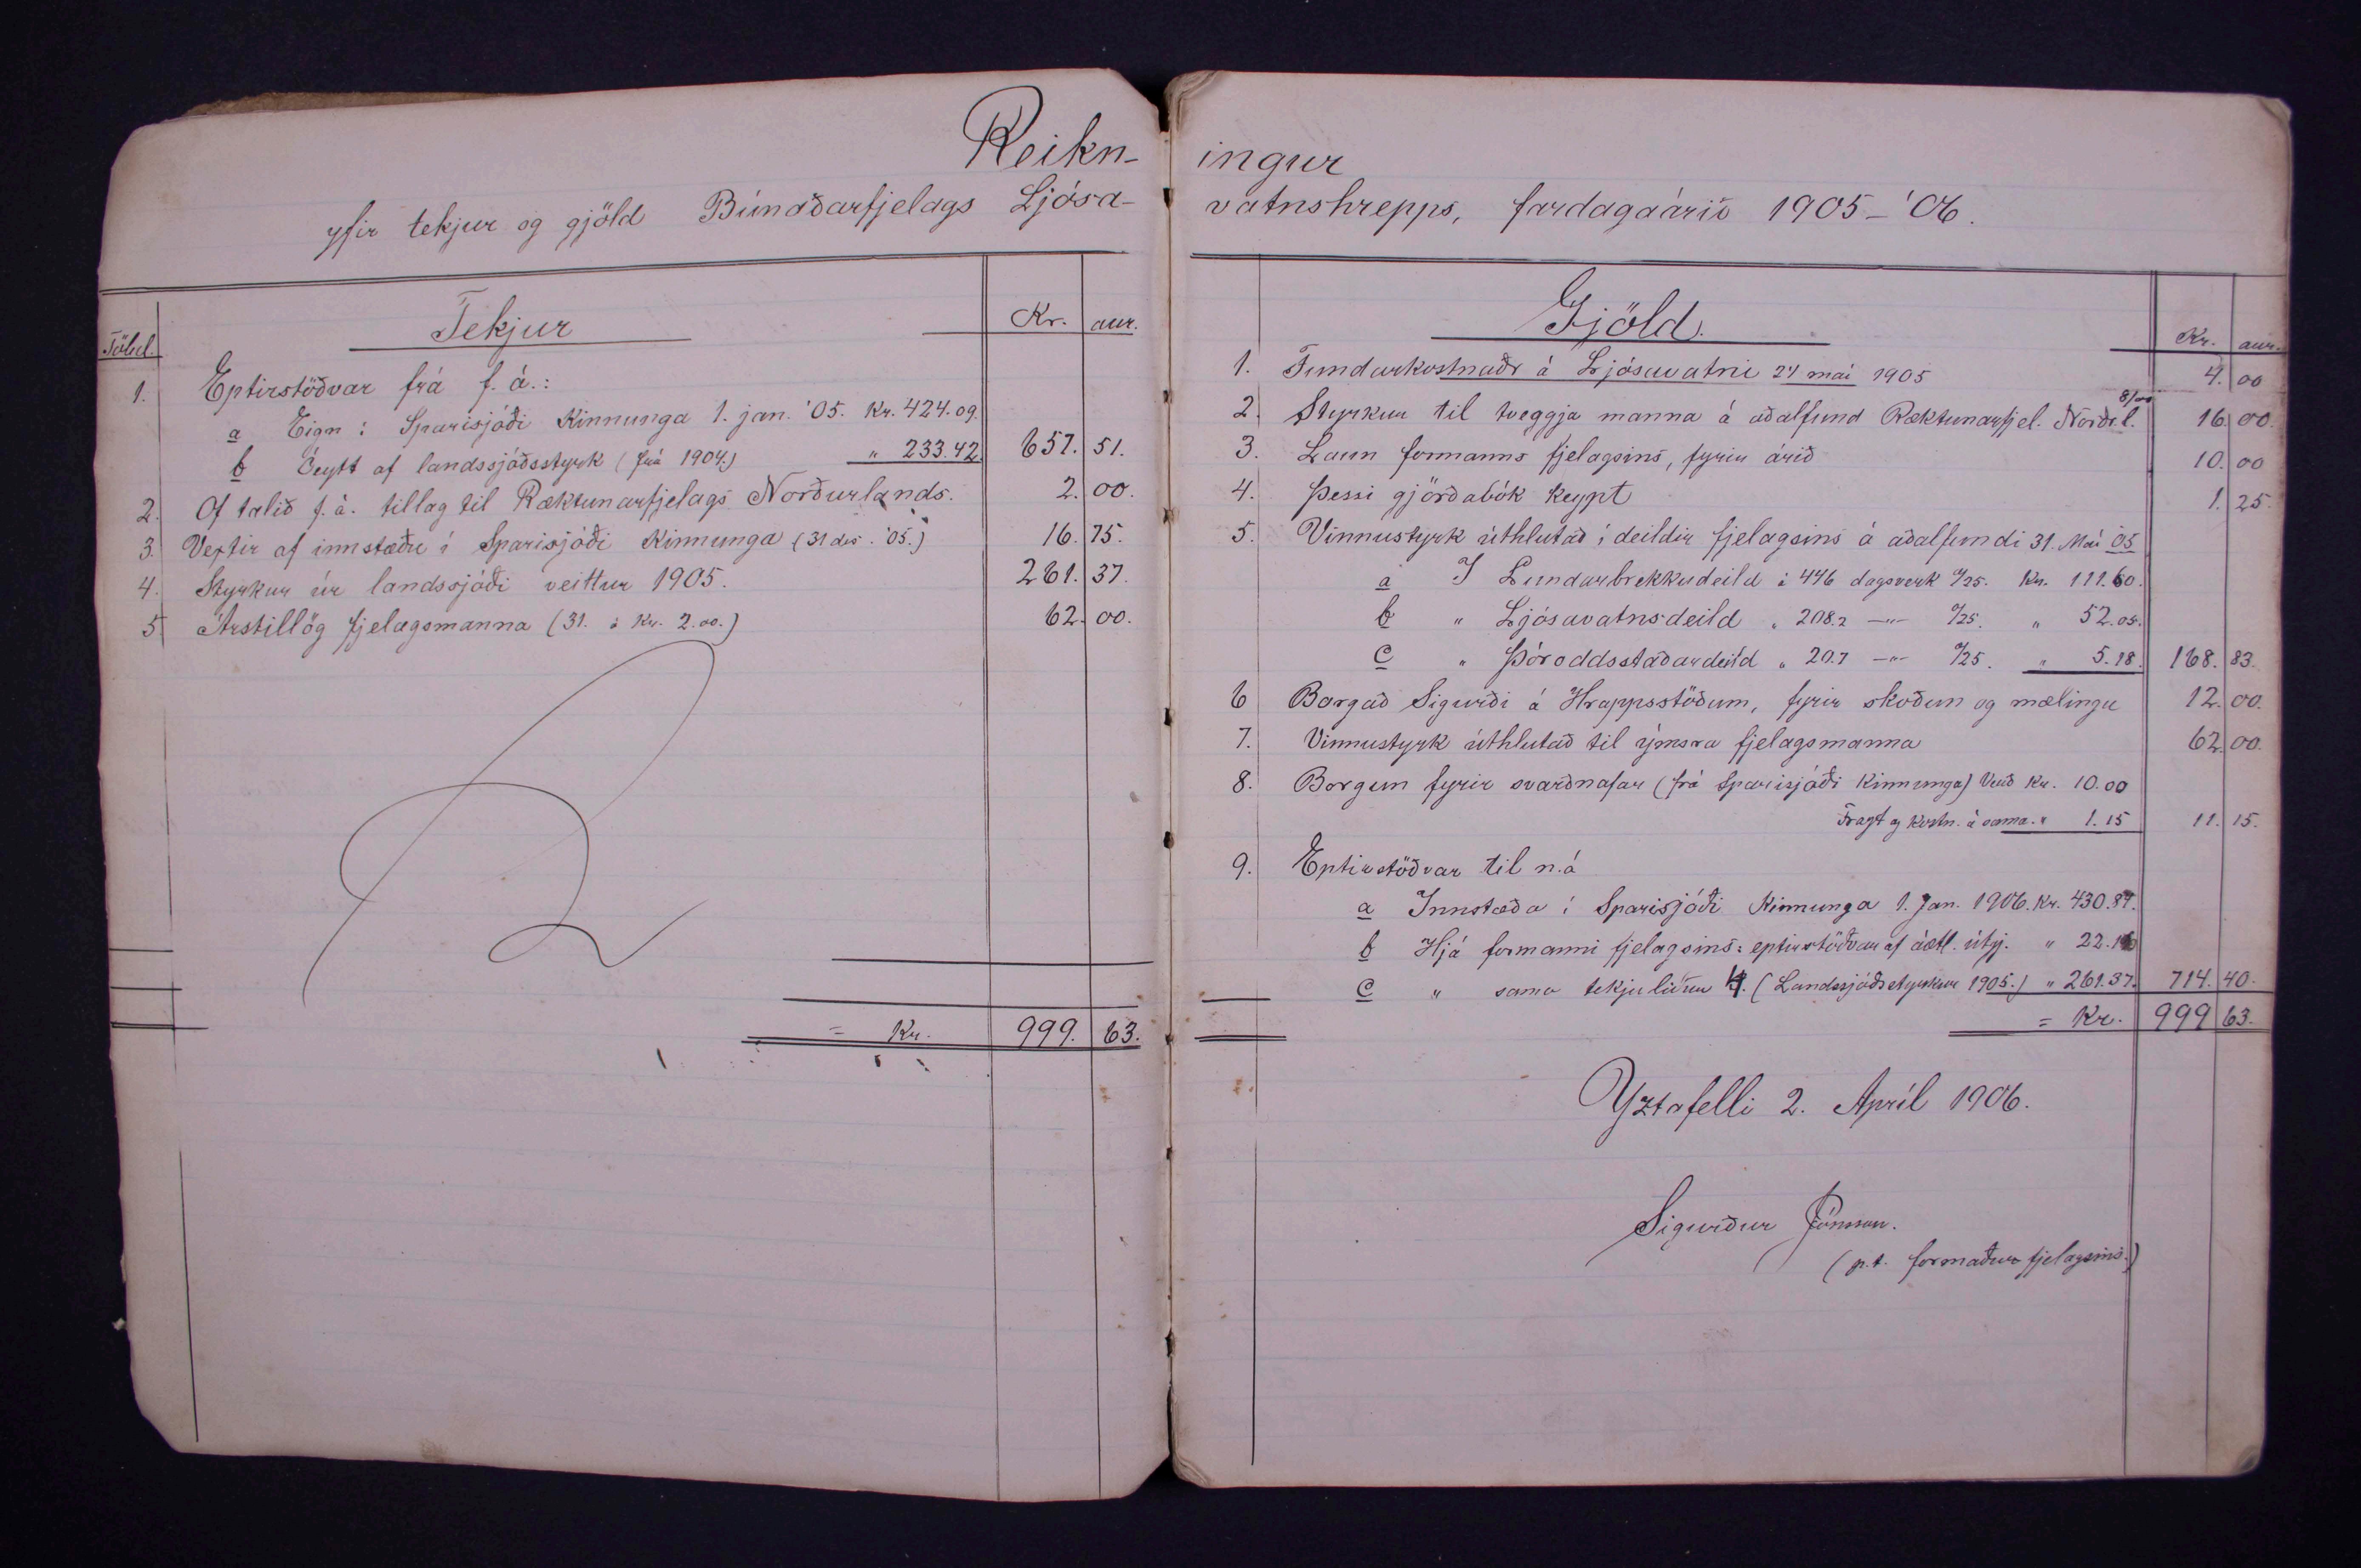 Reikn-
yfir tekjur og gjöld Búnaðarfjelags Ljósa-
Tölul. Tekjur Kr. aur.
1. Eptirstöðvar frá f. á.:
a Eign í Sparisjóði Kinnunga 1. jan. '05. Kr. 424.09.
b Óeytt af landssjóðsstyrk (frá 1904.) " 233.42. 657. 51.
2. Of talið f. á. tillag til Ræktunarfjelags Norðurlands. 2. 00.
3. Vextir af innstæðu í Sparisjóði Kinnunga (31 des. '05.) 16. 75.
4. Styrkur úr landssjóði veittur 1905. 261. 37.
5 Árstillög fjelagsmanna (31. á Kr. 2.00.) 62. 00.
= Kr. 999. 63.
ingur
vatnshrepps, fardagaárið 1905-'06.
Gjöld. Kr. aur.
1. Fundarkostnaðr á Ljósavatni 24 mai 1905 4. 00
2. Styrkur til tveggja manna á aðalfund Ræktunarfjel. Norðrl. 8/00 16. 00.
3. Laun formanns fjelagsins, fyrir árið 10. 00
4. Þessi gjörðabók keypt 1. 25.
5. Vinnustyrk úthlutað í deildir fjelagsins á aðalfundi 31. Mai 05
a Í Lundarbrekkudeild á 446 dagsverk %25. Kr. 111.60.
b " Ljósavatnsdeild " 208.2 —"— %25. " 52.05.
c " Þóroddsstaðardeild " 20.7 —"— %25. " 5.18. 168. 83.
6 Borgað Sigurði á Hrappsstöðum, fyrir skoðun og mælingu 12. 00.
7. Vinnustyrk úthlutað til ýmsra fjelagsmanna 62. 00.
8. Borgun fyrir svarðnafar (frá Sparisjóði Kinnunga) Verð Kr. 10.00
Fragt og kostn. á sama. " 1.15 11. 15.
9. Eptirstöðvar til n.á
a Innstæða í Sparisjóði Kinnunga 1. Jan. 1906. Kr. 430.87.
b Hjá formanni fjelagsins: eptirstöðvar af áætl. útgj. " 22.16
c " sama tekjuliður 4. (Landssjóðsstyrkur 1905.) " 261.37. 714. 40.
= Kr. 999 63.
Yztafelli 2. Apríl 1906.
Sigurður Jónsson.
(p.t. formaður fjelagsins.)